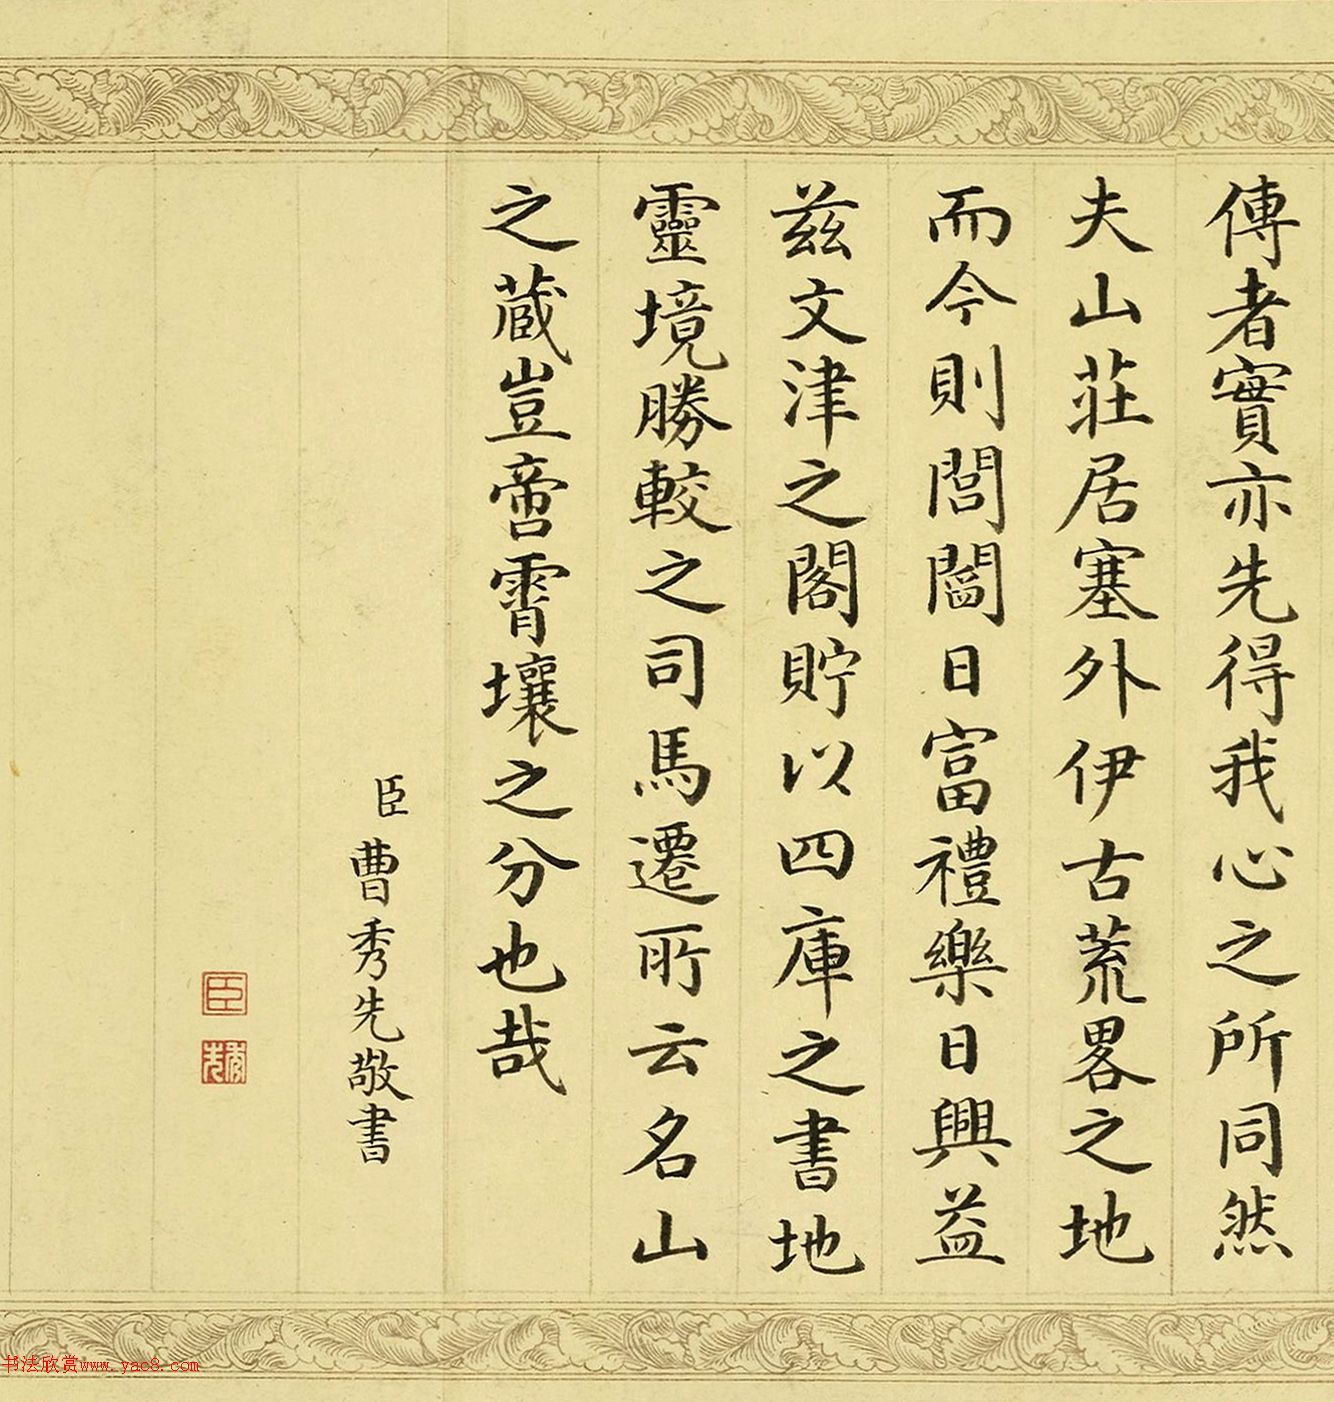 傳者實亦先得我心之所同然
夫山莊居塞外伊古荒畧之地
而今則閭閻日富禮樂日興益
茲文津之閣貯以四庫之書地
靈境勝較之司馬遷所云名山
之蔵豈啻霄壤之分也哉
臣曹秀先敬書
臣
秀先
书法欣赏www.yac8.com